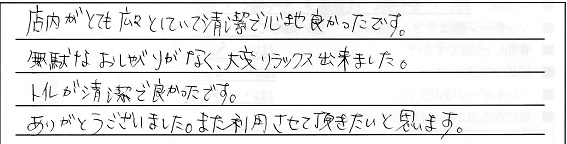 店内がとても広々としていて清潔で心地良かったです。
無駄なおしゃべりがなく、大変リラックス出来ました。
トイレが清潔で良かったです。
ありがとうございました。また利用させて頂きたいと思います。